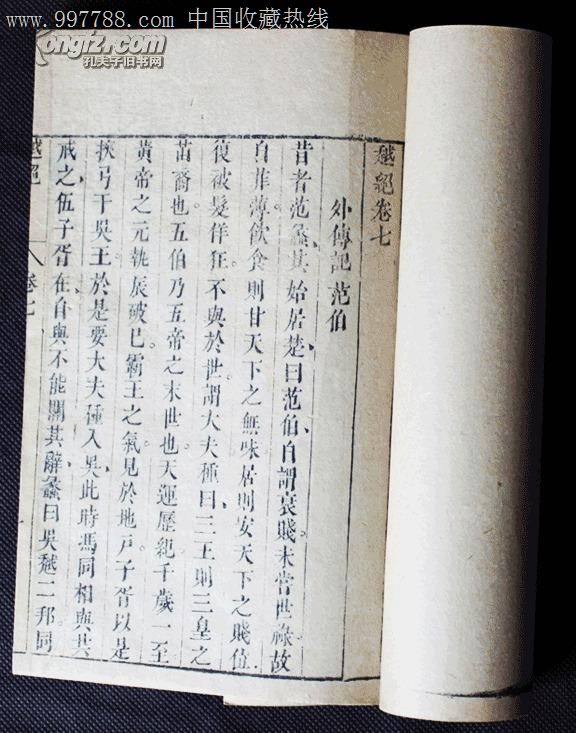 www.997788.com 中国收藏热线
kongfz.com
孔夫子旧书网
越絕卷七
外傳記范伯
昔者范蠡其始居楚曰范伯自謂衰賤未嘗世祿故
自菲薄飲食則甘天下之無味居則安天下之賤位
復被髮佯狂不與於世謂大夫種曰三王則三皇之
苗裔也五伯乃五帝之末世也天運歷紀千歲一至
黃帝之元執辰破巳霸王之氣見於地戶子胥以是
挾弓干吳王於是要大夫種入吳此時馮同相與共
戒之伍子胥在自與不能關其辭蠡曰吳越二邦同
越絕
卷七